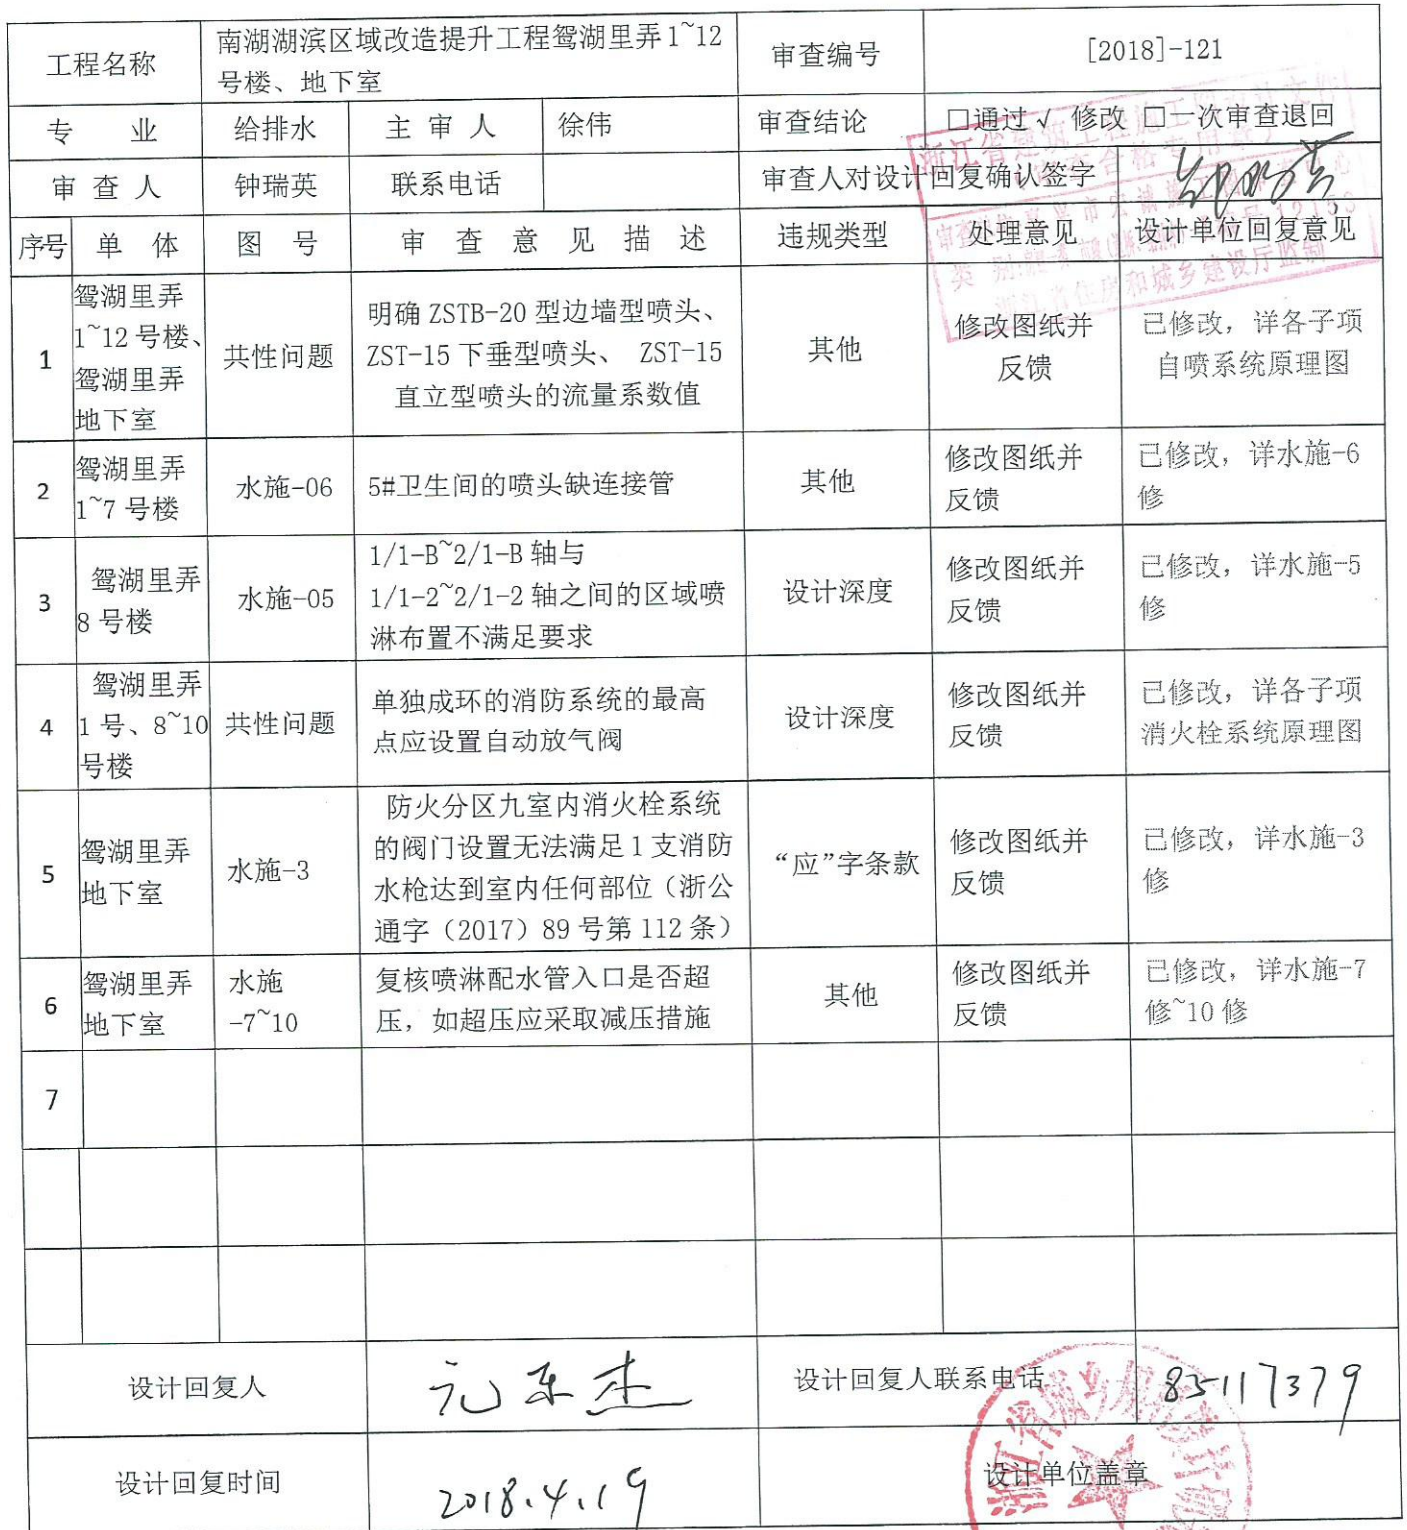 工程名称
南湖湖滨区域改造提升工程鸳湖里弄1~12
号楼、地下室
审查编号
[2018]-121
专 业
给排水
主 审 人
徐伟
审查结论
□通过 √ 修改 □一次审查退回
审 查 人
钟瑞英
联系电话
审查人对设计回复确认签字
序号
单 体
图 号
审 查 意 见 描 述
违规类型
处理意见
设计单位回复意见
1
鸳湖里弄
1~12 号楼、
鸳湖里弄
地下室
共性问题
明确 ZSTB-20 型边墙型喷头、
ZST-15 下垂型喷头、 ZST-15
直立型喷头的流量系数值
其他
修改图纸并
反馈
已修改，详各子项
自喷系统原理图
2
鸳湖里弄
1~7 号楼
水施-06
5#卫生间的喷头缺连接管
其他
修改图纸并
反馈
已修改，详水施-6
修
3
鸳湖里弄
8 号楼
水施-05
1/1-B~2/1-B 轴与
1/1-2~2/1-2 轴之间的区域喷
淋布置不满足要求
设计深度
修改图纸并
反馈
已修改，详水施-5
修
4
鸳湖里弄
1 号、8~10
号楼
共性问题
单独成环的消防系统的最高
点应设置自动放气阀
设计深度
修改图纸并
反馈
已修改，详各子项
消火栓系统原理图
5
鸳湖里弄
地下室
水施-3
防火分区九室内消火栓系统
的阀门设置无法满足 1 支消防
水枪达到室内任何部位（浙公
通字（2017）89 号第 112 条）
“应”字条款
修改图纸并
反馈
已修改，详水施-3
修
6
鸳湖里弄
地下室
水施
-7~10
复核喷淋配水管入口是否超
压，如超压应采取减压措施
其他
修改图纸并
反馈
已修改，详水施-7
修~10 修
7
设计回复人
设计回复人联系电话
85117379
设计回复时间
2018.4.19
设计单位盖章